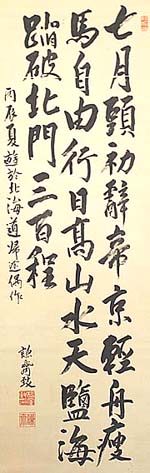 七月頭初辭帝京輕舟瘦
馬自由行日高山水天鹽海
踏破北門三百程
丙辰夏遊於北海道歸途偶作